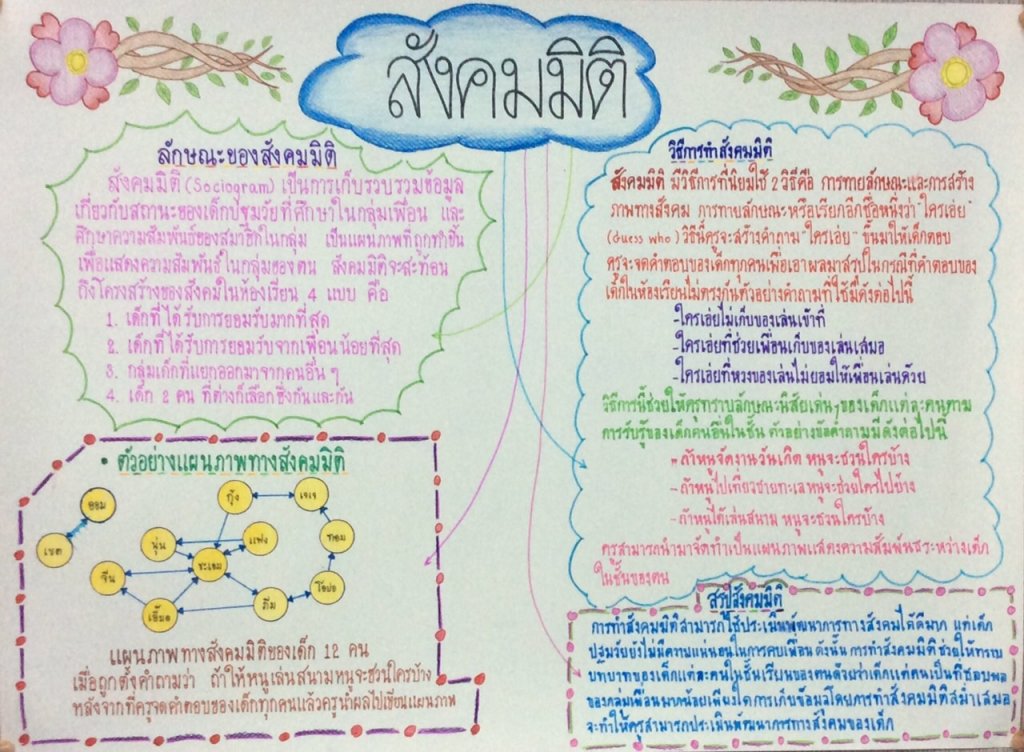 สังคมมิติ
ลักษณะของสังคมมิติ
สังคมมิติ (Sociogram) เป็นการเก็บรวบรวมข้อมูล
เกี่ยวกับสถานะของเด็กปฐมวัยที่ศึกษาในกลุ่มเพื่อน และ
ศึกษาความสัมพันธ์ของสมาชิกในกลุ่ม เป็นแผนภาพที่ถูกทำขึ้น
เพื่อแสดงความสัมพันธ์ในกลุ่มของตน สังคมมิติจะสะท้อน
ถึงโครงสร้างของสังคมในห้องเรียน 4 แบบ คือ
1. เด็กที่ได้รับการยอมรับมากที่สุด
2. เด็กที่ได้รับการยอมรับจากเพื่อนน้อยที่สุด
3. กลุ่มเด็กที่แยกออกมาจากคนอื่น ๆ
4. เด็ก 2 คน ที่ต่างก็เลือกซึ่งกันและกัน
• ตัวอย่างแผนภาพทางสังคมมิติ
ออม
เชต
กุ้ง
เจเจ
นุ่น
แฟง
ทอม
ชะเอม
จีน
เอิ้มอ
ภีม
โอปอ
แผนภาพทางสังคมมิติของเด็ก 12 คน
เมื่อถูกตั้งคำถามว่า ถ้าให้หนูเล่นสนามหนูจะชวนใครบ้าง
หลังจากที่ครูจดคำตอบของเด็กทุกคนแล้วครูนำผลไปเขียนแผนภาพ
วิธีการทำสังคมมิติ
สังคมมิติ มีวิธีการที่นิยมใช้ 2 วิธีคือ การทายลักษณะและการสร้าง
ภาพทางสังคม การทายลักษณะหรือเรียกอีกชื่อหนึ่งว่า "ใครเอ่ย"
(Guess who) วิธีนี้ครูจะสร้างคำถาม "ใครเอ่ย" ขึ้นมาให้เด็กตอบ
ครูจะจดคำตอบของเด็กทุกคนเพื่อเอาผลมาสรุปในกรณีที่คำตอบของ
เด็กในห้องเรียนไม่ตรงกันตัวอย่างคำถามที่ใช้มีดังต่อไปนี้
-ใครเอ่ยไม่เก็บของเล่นเข้าที่
-ใครเอ่ยที่ช่วยเพื่อนเก็บของเล่นเสมอ
-ใครเอ่ยที่หวงของเล่นไม่ยอมให้เพื่อนเล่นด้วย
วิธีการนี้ช่วยให้ครูทราบลักษณะนิสัยเด่นๆของเด็กแต่ละคนตาม
การรับรู้ของเด็กคนอื่นในชั้น ตัวอย่างข้อคำถามมีดังต่อไปนี้
- ถ้าหนูจัดงานวันเกิด หนูจะชวนใครบ้าง
- ถ้าหนูไปเที่ยวชายทะเลหนูจะชวนใครไปบ้าง
- ถ้าหนูได้เล่นสนาม หนูจะชวนใครบ้าง
ครูสามารถนำมาจัดทำเป็นแผนภาพแสดงความสัมพันธ์ระหว่างเด็ก
ในชั้นของตน
สรุปสังคมมิติ
การทำสังคมมิติสามารถใช้ประเมินพัฒนาการทางสังคมได้ดีมาก แต่เด็ก
ปฐมวัยยังไม่มีความแน่นอนในการคบเพื่อน ดังนั้น การทำสังคมมิติช่วยให้ทราบ
บทบาทของเด็กแต่ละคนในชั้นเรียนของตนด้วยว่าเด็กแต่คนเป็นที่ชอบพอ
ของกลุ่มเพื่อนมากน้อยเพียงใด การเก็บข้อมูลโดยการทำสังคมมิติสม่ำเสมอ
จะทำให้ครูสามารถประเมินพัฒนาการทางสังคมของเด็ก